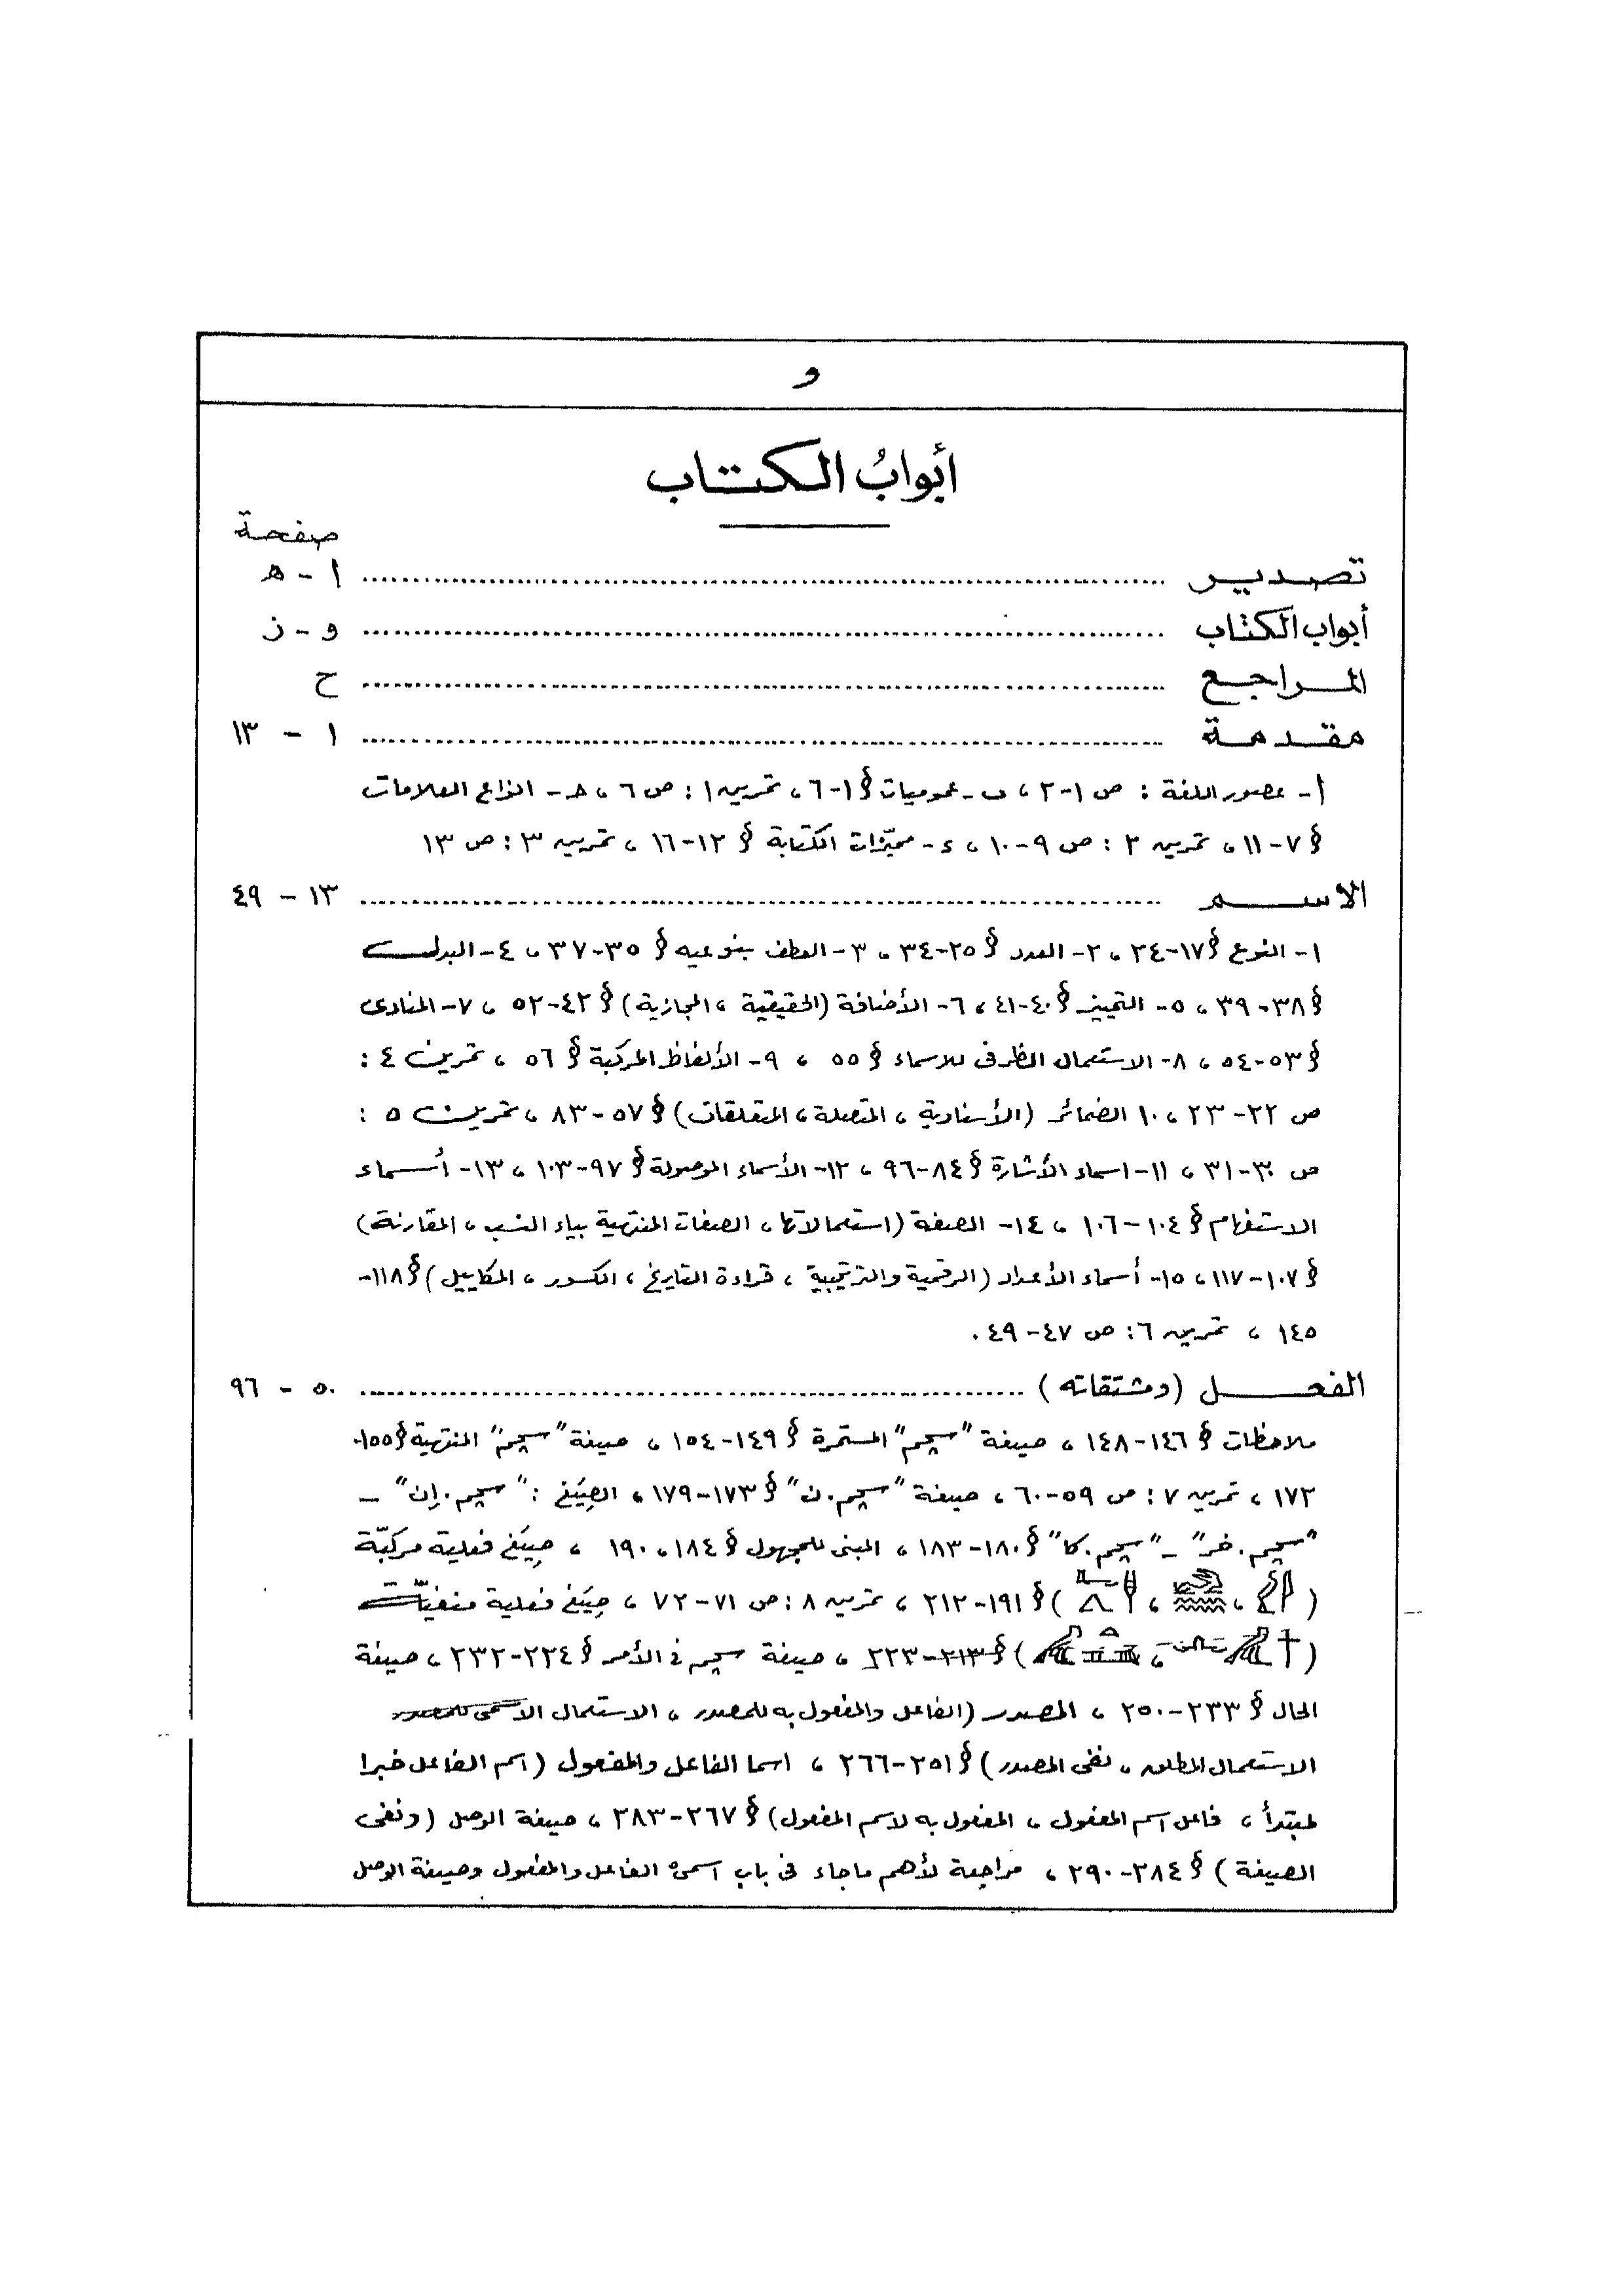 و
أبوابُ الكتاب
صفحة
تصدير ........ أ - ه
أبواب الكتاب ........ و - ز
المراجع ........ ح
مقدمة ........ ١ - ١٣
أ- عصور اللغة : ص ١-٢ ، ب - عموميات § ١-٦ ، تمرين ١ : ص ٦ ، حـ - انواع العلامات
§ ٧-١١ ، تمرين ٢ : ص ٩-١٠ ، ء - مميّزات الكتابة § ١٢-١٦ ، تمرين ٣ : ص ١٣
الاسم ........ ١٣ - ٤٩
١- النوع § ١٧-٢٤ ، ٢- العدد § ٢٥-٣٤ ، ٣- العطف بنوعيه § ٣٥-٣٧ ، ٤- البدل
§ ٣٨-٣٩ ، ٥- التمييز § ٤٠-٤١ ، ٦- الأضافة (الحقيقية ، المجازية) § ٤٢-٥٢ ، ٧- المنادى
§ ٥٣-٥٤ ، ٨- الاستعمال الظرفى للاسماء § ٥٥ ، ٩- الألفاظ المركبة § ٥٦ ، تمرين ٤ :
ص ٢٢-٢٣ ، ١٠ الضمائر (الأسنادية ، المتصلة ، المتعلقات) § ٥٧-٨٣ ، تمرين ٥ :
ص ٣٠-٣١ ، ١١- اسماء الأشارة § ٨٤-٩٦ ، ١٢- الأسماء الموصولة § ٩٧-١٠٣ ، ١٣- أسماء
الاستفهام § ١٠٤-١٠٦ ، ١٤- الصفة (استعمالاتها ، الصفات المنتهية بياء النسب ، المقارنة)
§ ١٠٧-١١٧ ، ١٥- أسماء الأعداد (الرقمية والترتيبية ، قراءة التاريخ ، الكسور ، المكاييل) § ١١٨-
١٤٥ ، تمرين ٦ : ص ٤٧-٤٩ .
الفعل (ومشتقاته) ........ ٥٠ - ٩٦
ملاحظات § ١٤٦-١٤٨ ، صيغة "سچم" المستمرة § ١٤٩-١٥٤ ، صيغة "سچم" المنتهية § ١٥٥-
١٧٢ ، تمرين ٧ : ص ٥٩-٦٠ ، صيغة "سچم.ن" § ١٧٣-١٧٩ ، الصِيَغ : "سچم.إن" -
"سچم.خر" - "سچم.كا" § ١٨٠-١٨٣ ، المبنى للمجهول § ١٨٤ ، ١٩٠ ، صِيَغ فعلية مركبّة
( ، ، ) § ١٩١-٢١٢ ، تمرين ٨ : ص ٧١-٧٢ ، صِيَغ فعلية منفيّة
( ، ) § ٢١٣-٢٢٣ ، صيغة سچم فى الأمر § ٢٢٤-٢٣٢ ، صيغة
الحال § ٢٣٣-٢٥٠ ، المصدر (الفاعل والمفعول به للمصدر ، الاستعمال الاسمى للمصدر
الاستعمال المطلق ، نفى المصدر) § ٢٥١-٢٦٦ ، اسما الفاعل والمفعول (اسم الفاعل خبرا
لمبتدأ ، فاعل اسم المفعول ، المفعول به لاسم المفعول) § ٢٦٧-٢٨٣ ، صيغة الوصل (ونفى
الصيغة) § ٢٨٤-٢٩٠ ، مراجعة لأهم ماجاء فى باب اسمى الفاعل والمفعول وصيغة الوصل